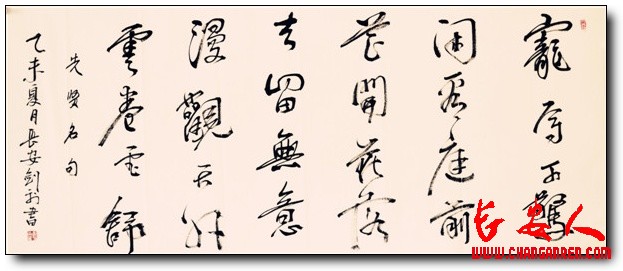 寵辱不驚
闲看庭前
花開花落
去留無意
漫觀天外
雲卷云舒
先贤名句
乙未夏月長安剑書
长安人
WWW.CHANGANREN.COM